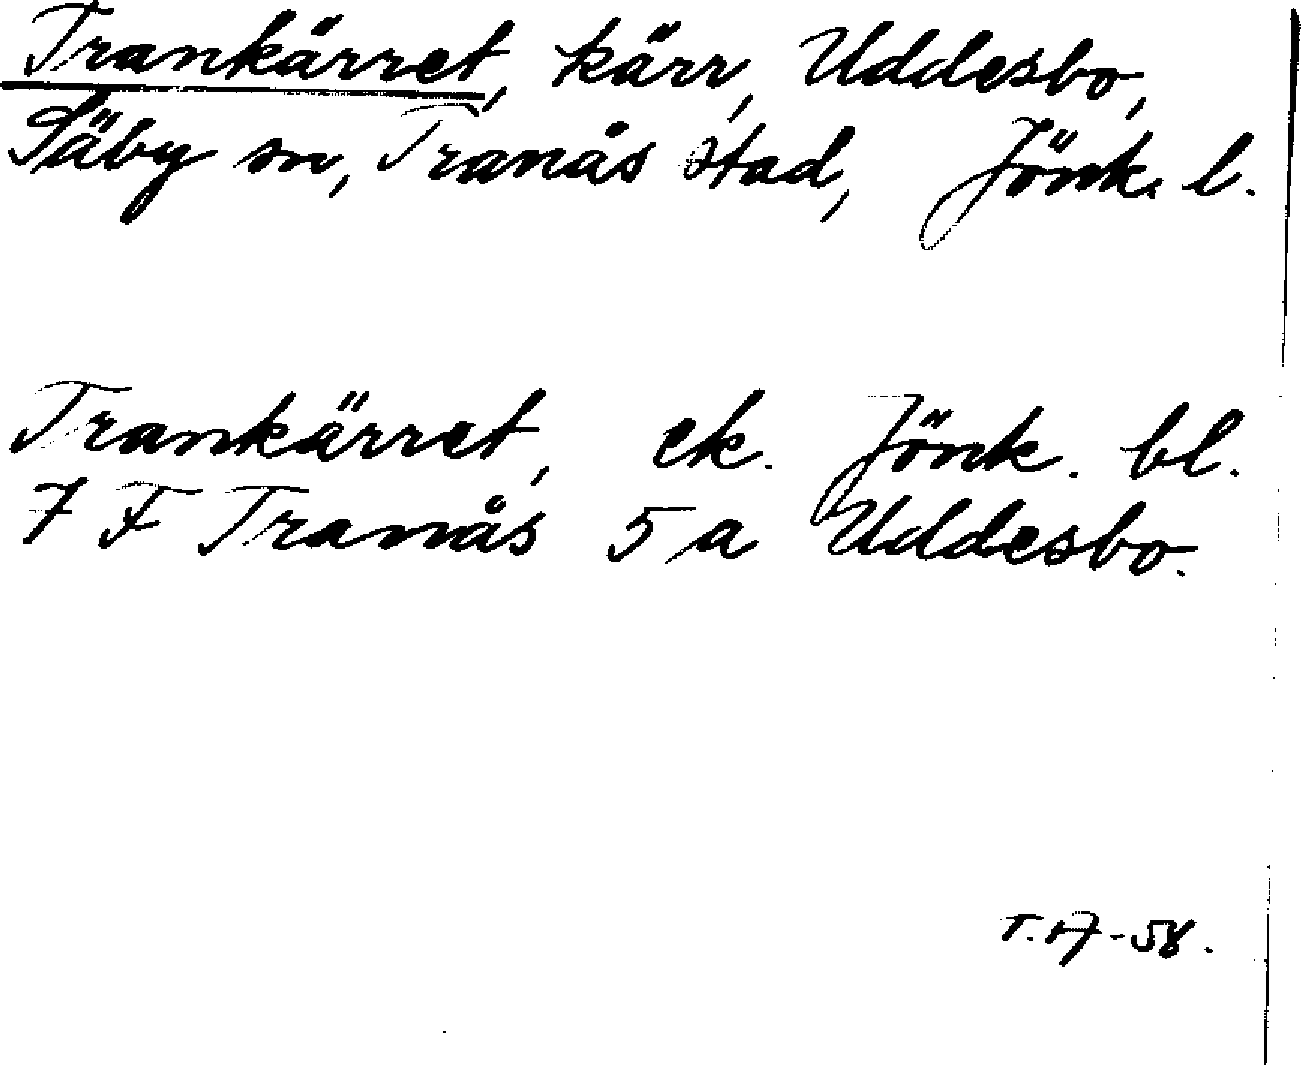 Trankärret, kärr, Uddesbo,
Säby sn, Tranås stad, Jönk. l.
Trankärret, ek. Jönk. bl.
7 F Tranås 5 a Uddesbo.
T. 17-58.